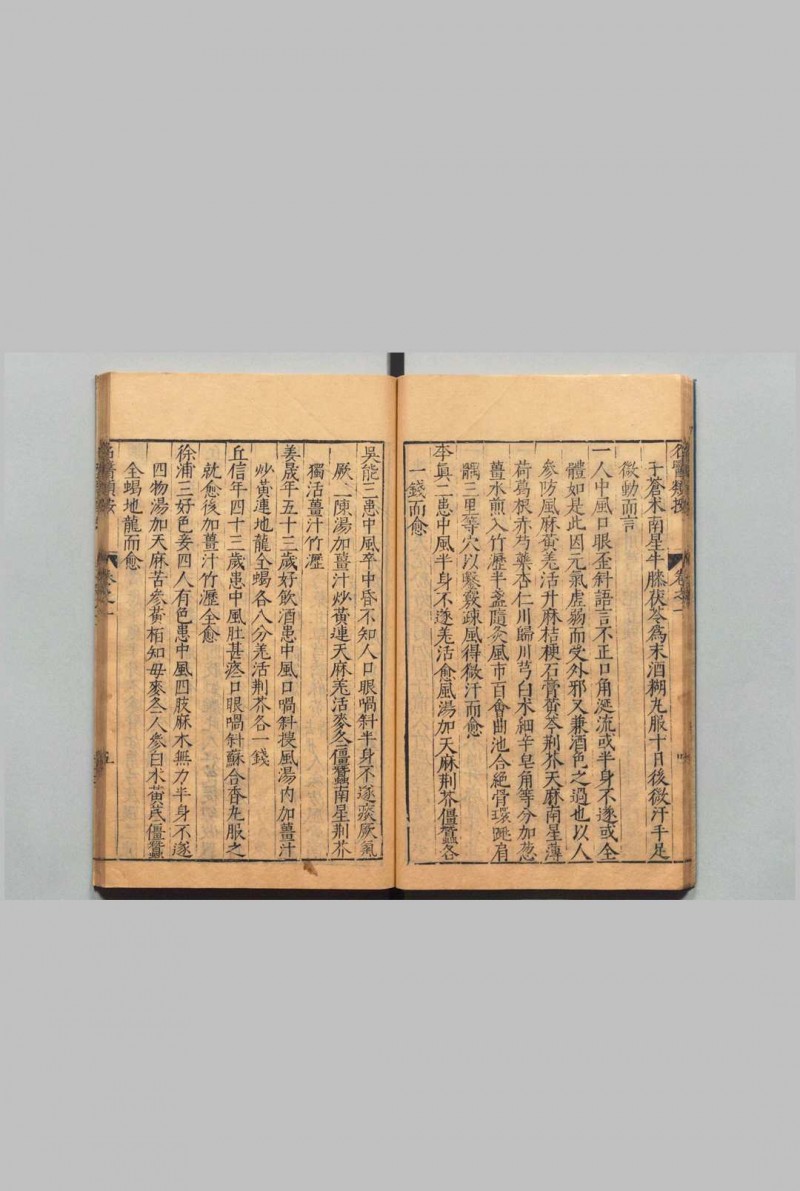 名醫類按
卷之一
子蒼朮南星牛膝茯苓爲末酒糊丸服十日後微汗手足
微動而言
一人中風口眼歪斜語言不正口角涎流或半身不遂或全
體如是此因元氣虛弱而受外邪又兼酒色之過也以人
參防風麻黃羌活升麻桔梗石膏黃芩荊芥天麻南星薄
荷葛根赤芍藥杏仁川歸川芎白朮細辛皂角等分加葱
薑水煎入竹瀝半盞隨灸風市百會曲池合絕骨環跳肩
髃三里等穴以鑿竅疎風得微汗而愈
李真二患中風半身不遂羌活愈風湯加天麻荊芥僵蠶各
一錢而愈
吳能三患中風卒中昏不知人口眼喎斜半身不遂痰厥氣
厥二陳湯加薑汁炒黃連天麻羌活麥冬僵蠶南星荊芥
獨活薑汁竹瀝
姜晟年五十三歲好飲酒患中風口喎斜搜風湯内加薑汁
炒黃連地龍全蝎各八分羌活荊芥各一錢
丘信年四十三歲患中風肚甚疼口眼喎斜蘇合香丸服之
就愈後加薑汁竹瀝全愈
徐浦三好色妾四人有色患中風四肢麻木無力半身不遂
四物湯加天麻苦參黃栢知母麥冬人參白朮黃芪僵蠶
全蝎地龍而愈
名醫類按
卷之一